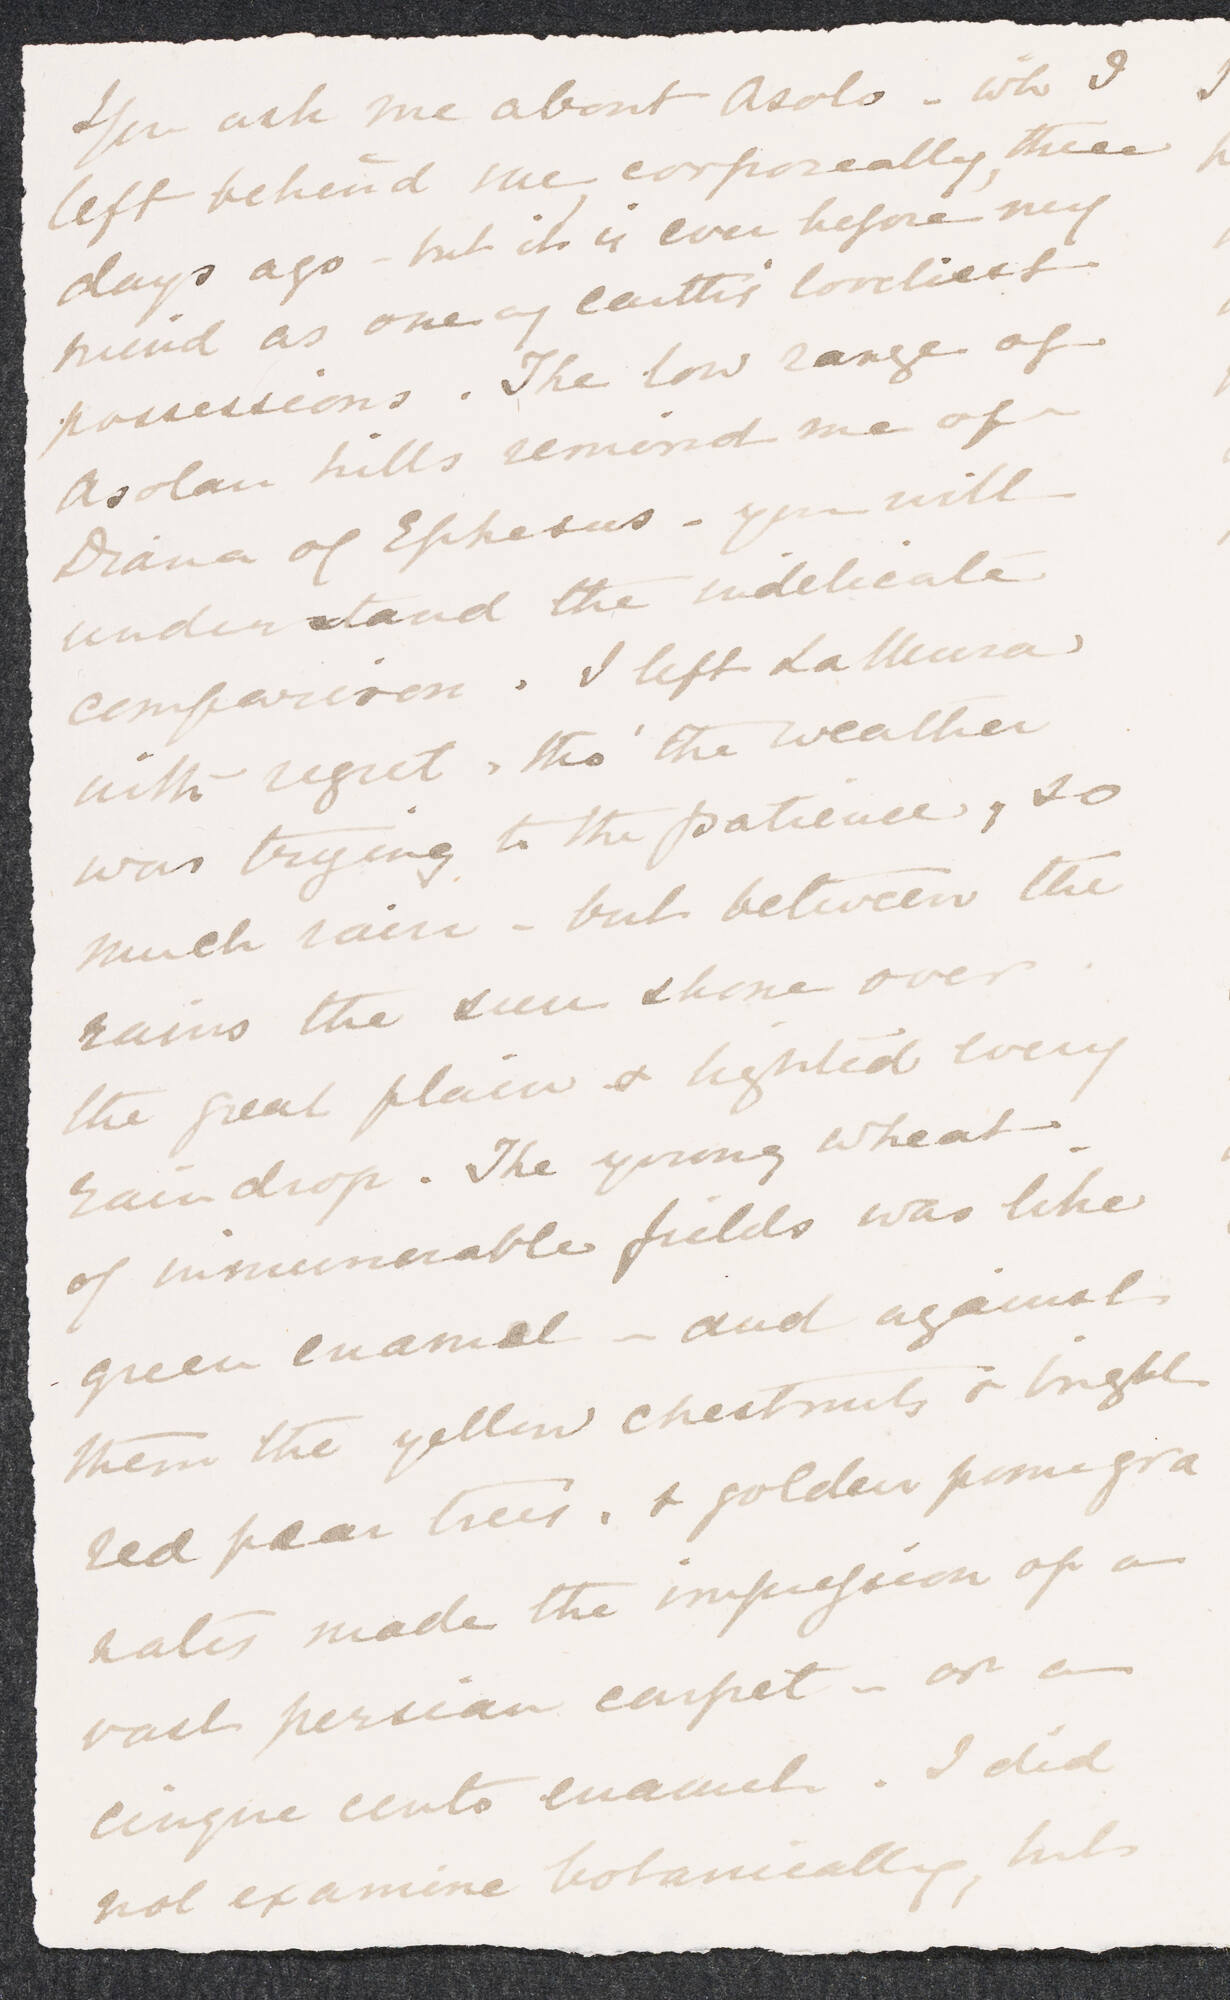 You ask me about Asolo - wh I
left behind me, corporeally, three
days ago - but it is ever before my
mind as one of earth's loveliest
possessions. The low range of
Asolan hills remind me of
Diana of Ephesus - you will
understand the indelicate
comparison. I left La Mura
with regret, tho' the weather
was trying to the patience, so
much rain - but between the
rains the sun shone over
the great plain & lighted every
rain drop. The young wheat
of innumerable fields was like
green enamel - and against
them the yellow chestnuts & bright
red pear trees, & golden pomegra
nates made the impression of a
vast persian carpet - or a
cinque cento enamel. I did
not examine botanically, but